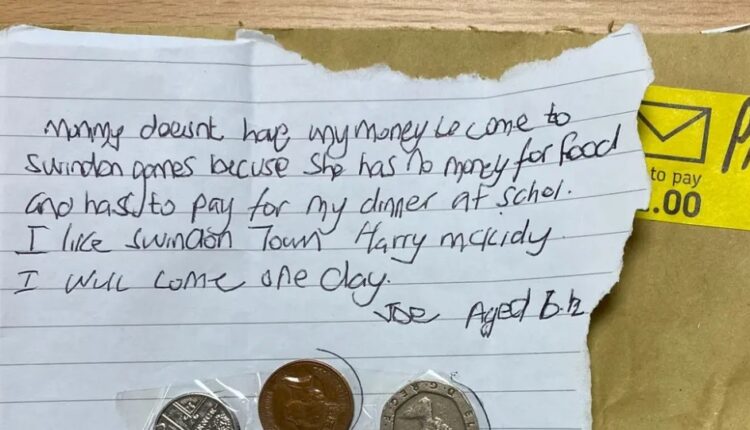 Mummy doesnt have my money to come to
swindon games becuse she has no money for food
and has to pay for my dinner at schol.
I like swindon Town Harry mckidy
I will come one day.
Joe Aged 6 ½
to pay
.00